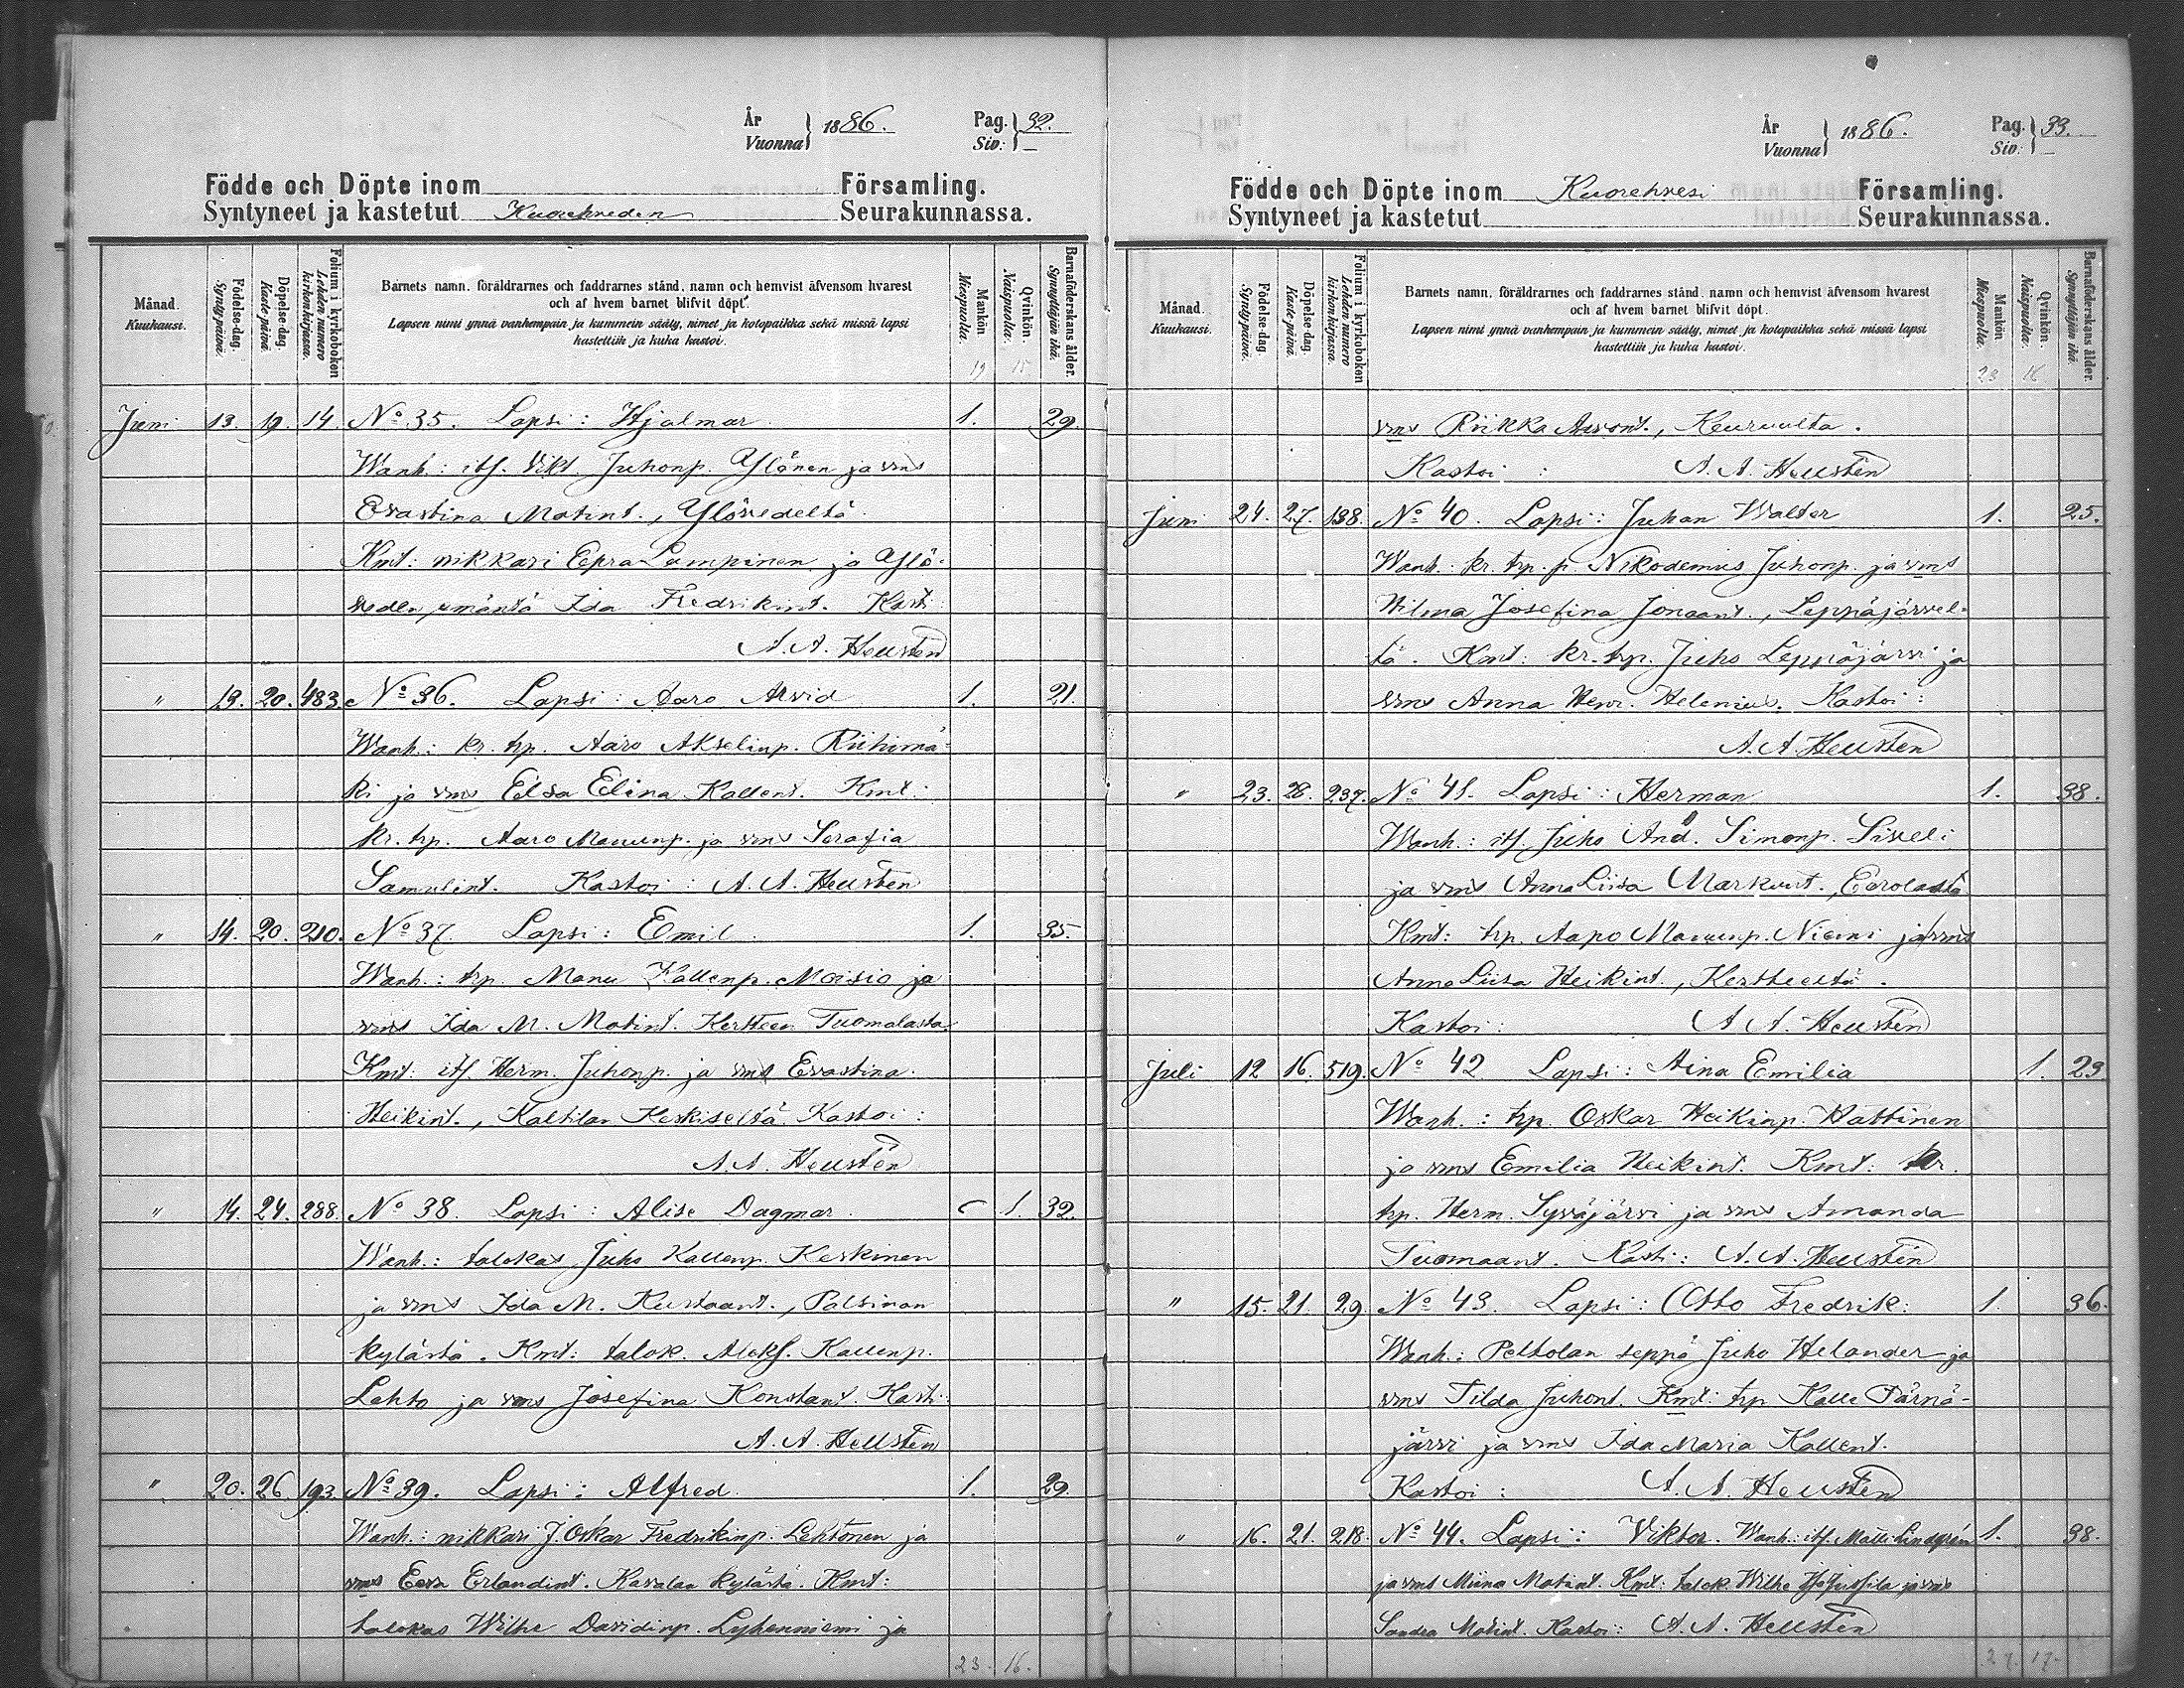 År
Vuonna } 1886.
Pag. } 32.
Siv: } —
Födde och Döpte inom Församling.
Syntyneet ja kastetut Kuorehveden Seurakunnassa.
Månad. Kuukausi.
Födelse-dag. Synty-päivä.
Döpelse-dag. Kaste-päivä.
Folium i kyrkoboken Lehden numero kirkonkirjassa.
Barnets namn, föräldrarnes och faddrarnes stånd, namn och hemvist äfvensom hvarest
och af hvem barnet blifvit döpt.
Lapsen nimi ynnä vanhempain ja kummein sääty, nimet ja kotopaikka sekä missä lapsi
kastettiin ja kuka kastoi.
Mankön. Miespuolta.
Qvinkön. Naispuolta.
Barnaföderskans ålder. Synnyttäjän ikä.
19 15
Juni 13. 19. 14. No 35. Lapsi: Hjalmar 1. 29.
Wanh.: its. Vikt. Juhonp. Ylönen ja vms
Evastina Matint., Ylövedeltä
Kmt: nikkari Eepra Lampinen ja Ylö-
veden emäntä Ida Fredrikint. Kasti:
A. A. Hellstén
" 13. 20. 483. No 36. Lapsi: Aaro Arvid 1. 21.
Wanh.: kr. trp. Aaro Akselinp. Riihimä-
ki ja vms Elsa Elina Kallent. Kmt:
kr. trp. Aaro Manunp. ja vms Serafia
Samulint. Kastoi: A. A. Hellstén
" 14. 20. 210. No 37. Lapsi: Emil 1. 35.
Wanh.: trp. Manu Kallenp. Moisio ja
vms Ida M. Matint. Kertteen Tuomalasta
Kmt: its. Herm. Juhonp. ja vms Evastina
Heikint., Kaltilan Keskiseltä Kastoi:
A. A. Hellstén
" 14. 24. 288. No 38. Lapsi: Alise Dagmar. 1. 32.
Wanh.: talokas Juho Kallenp. Keskinen
ja vms Ida M. Kustaant., Palsinan
kylästä. Kmt: talok. Aleks. Kallenp.
Lehto ja vms Josefina Konstant. Kasti:
A. A. Hellstén
" 20. 26. 193. No 39. Lapsi: Alfred. 1. 29.
Wanh.: nikkari J. Oskar Fredrikinp. Lehtonen ja
vms Eeva Erlandint. Kavalan kylästä. Kmt:
talokas Wilhe Davidinp. Lyhenniemi ja
23. 16.
År
Vuonna } 1886.
Pag. } 33.
Siv: } —
Födde och Döpte inom Kuorehvesi Församling.
Syntyneet ja kastetut Seurakunnassa.
Månad. Kuukausi.
Födelse-dag. Synty-päivä.
Döpelse-dag. Kaste-päivä.
Folium i kyrkoboken Lehden numero kirkon kirjassa.
Barnets namn, föräldrarnes och faddrarnes stånd, namn och hemvist äfvensom hvarest
och af hvem barnet blifvit döpt.
Lapsen nimi ynnä vanhempain ja kummein sääty, nimet ja kotopaikka sekä missä lapsi
kastettiin ja kuka kastoi.
Mankön. Miespuolta.
Qvinkön. Naispuolta.
Barnaföderskans ålder. Synnyttäjän ikä.
23 16
vms Riikka, Keuruulta.
Kastoi: A. A. Hellstén
Juni 24. 27. 138. No 40. Lapsi: Juhan Walter 1. 25.
Wanh.: kr. trp. p. Nikodemus Juhonp. ja vms
Wilma Josefina Jonaant., Leppäjärvel-
tä. Kmt: kr. trp. Juho Leppäjärvi ja
vms Anna Henr. Helenius. Kastoi:
A. A. Hellstén
" 23. 28. 237. No 41. Lapsi: Herman 1. 38.
Wanh.: its. Juho And. Simonp. Siveli
ja vms Anna Liisa Markunt., Eerolasta
Kmt: trp. Aapo Manunp. Niemi ja vms
Anna Liisa Heikint., Kertteeltä.
Kastoi: A. A. Hellstén
Juli 12 16. 519. No 42 Lapsi: Aina Emilia 1. 23
Wanh.: trp. Oskar Heikinp. Hattinen
ja vms Emilia Heikint. Kmt: kr.
trp. Herm. Syväjärvi ja vms Amanda
Tuomaant. Kasti: A. A. Hellstén
" 15. 21. 29. No 43. Lapsi: Otto Fredrik: 1. 36.
Wanh.: Peltolan seppä Juho Helander ja
vms Tilda Juhont. Kmt: trp Kalle Pärnä-
järvi ja vms Ida Maria Kallent.
Kastoi: A. A. Hellstén
" 16. 21. 218. No 44. Lapsi: Viktor. Wanh.: its. Matti Lindgrén 1. 38.
ja vms Miina Matint. Kmt: talok. Wilhe ja vms
Sandra Matint. Kastoi: A. A. Hellstén
27. 17.